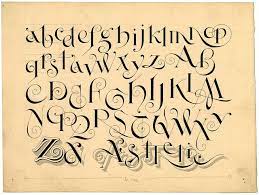 abcdefghijklmnop
qrstuvwxyz AB
CDEFGHIJKLM
NOPQRSTUVWXY
Z&